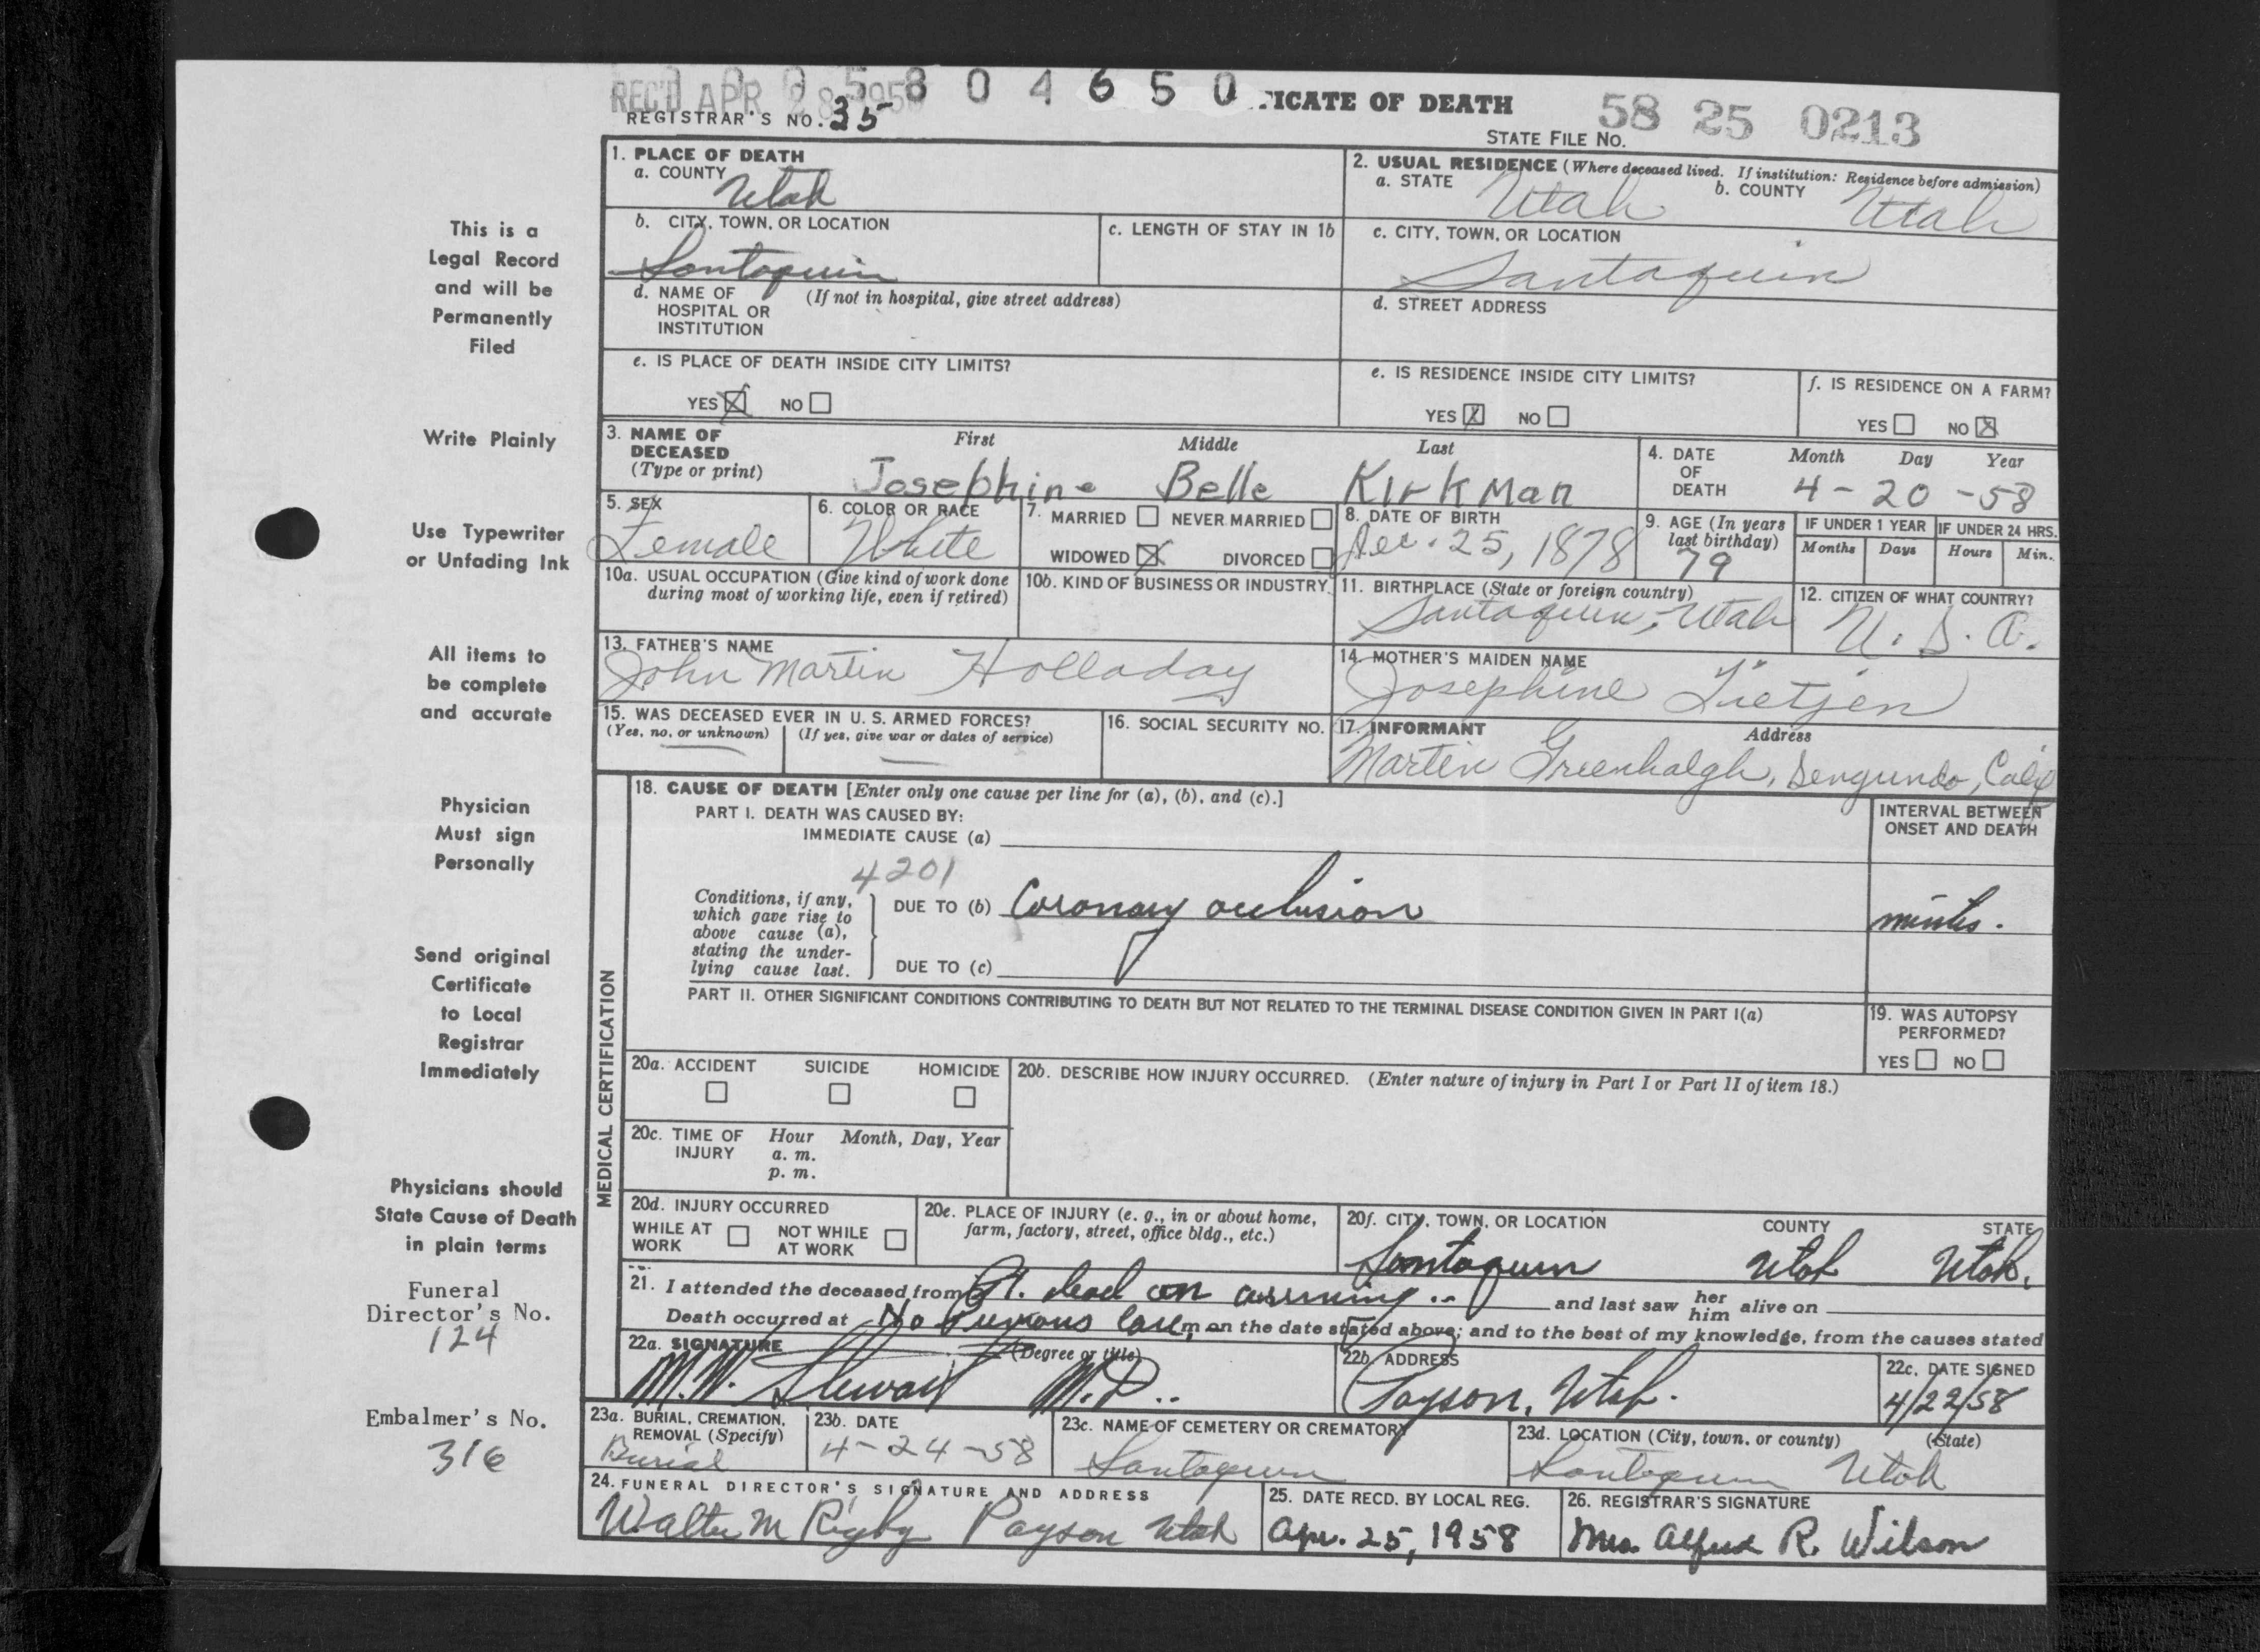 REC'D APR 28 1958
0 0 0 5 8 0 4 6 5 0 .ICATE OF DEATH 58 25 0213
REGISTRAR'S NO. 35
STATE FILE NO.
1. PLACE OF DEATH
a. COUNTY
Utah
2. USUAL RESIDENCE (Where deceased lived. If institution: Residence before admission)
a. STATE Utah b. COUNTY Utah
b. CITY, TOWN, OR LOCATION
Santaquin
c. LENGTH OF STAY IN 1b
c. CITY, TOWN, OR LOCATION
Santaquin
d. NAME OF (If not in hospital, give street address)
HOSPITAL OR
INSTITUTION
d. STREET ADDRESS
e. IS PLACE OF DEATH INSIDE CITY LIMITS?
YES X NO
e. IS RESIDENCE INSIDE CITY LIMITS?
YES X NO
f. IS RESIDENCE ON A FARM?
YES NO X
3. NAME OF First Middle Last
DECEASED
(Type or print) Josephine Belle Kirkman
4. DATE Month Day Year
OF
DEATH 4-20-58
5. SEX
Female
6. COLOR OR RACE
White
7. MARRIED NEVER MARRIED
WIDOWED X DIVORCED
8. DATE OF BIRTH
Dec. 25, 1878
9. AGE (In years
last birthday)
79
IF UNDER 1 YEAR IF UNDER 24 HRS.
Months Days Hours Min.
10a. USUAL OCCUPATION (Give kind of work done
during most of working life, even if retired)
10b. KIND OF BUSINESS OR INDUSTRY
11. BIRTHPLACE (State or foreign country)
Santaquin, Utah
12. CITIZEN OF WHAT COUNTRY?
U. S. A.
13. FATHER'S NAME
John Martin Holladay
14. MOTHER'S MAIDEN NAME
Josephine Tietjen
15. WAS DECEASED EVER IN U. S. ARMED FORCES?
(Yes, no, or unknown) (If yes, give war or dates of service)
16. SOCIAL SECURITY NO.
17. INFORMANT Address
Martin Greenhalgh, Sengundo, Calif
MEDICAL CERTIFICATION
18. CAUSE OF DEATH [Enter only one cause per line for (a), (b), and (c).]
PART I. DEATH WAS CAUSED BY:
IMMEDIATE CAUSE (a)
INTERVAL BETWEEN
ONSET AND DEATH
4201
Conditions, if any,
which gave rise to
above cause (a),
stating the under-
lying cause last.
DUE TO (b) Coronary occlusion
DUE TO (c)
PART II. OTHER SIGNIFICANT CONDITIONS CONTRIBUTING TO DEATH BUT NOT RELATED TO THE TERMINAL DISEASE CONDITION GIVEN IN PART I(a)
19. WAS AUTOPSY
PERFORMED?
YES NO
20a. ACCIDENT SUICIDE HOMICIDE
20b. DESCRIBE HOW INJURY OCCURRED. (Enter nature of injury in Part I or Part II of item 18.)
20c. TIME OF Hour Month, Day, Year
INJURY a. m.
p. m.
20d. INJURY OCCURRED
WHILE AT NOT WHILE
WORK AT WORK
20e. PLACE OF INJURY (e. g., in or about home,
farm, factory, street, office bldg., etc.)
20f. CITY, TOWN, OR LOCATION COUNTY STATE
Santaquin Utah Utah.
21. I attended the deceased from Pt. dead on arriving .. and last saw her him alive on
Death occurred at No Previous Call, m on the date stated above; and to the best of my knowledge, from the causes stated
22a. SIGNATURE (Degree or title)
M. W. Stewart M.D..
22b. ADDRESS
Payson, Utah.
22c. DATE SIGNED
4/22/58
23a. BURIAL, CREMATION,
REMOVAL (Specify)
Burial
23b. DATE
4-24-58
23c. NAME OF CEMETERY OR CREMATORY
Santaquin
23d. LOCATION (City, town, or county) (State)
Santaquin Utah
24. FUNERAL DIRECTOR'S SIGNATURE AND ADDRESS
Walter M Rigby Payson Utah
25. DATE RECD. BY LOCAL REG.
Apr. 25, 1958
26. REGISTRAR'S SIGNATURE
Mrs. Alfred R. Wilson
This is a
Legal Record
and will be
Permanently
Filed
Write Plainly
Use Typewriter
or Unfading Ink
All items to
be complete
and accurate
Physician
Must sign
Personally
Send original
Certificate
to Local
Registrar
Immediately
Physicians should
State Cause of Death
in plain terms
Funeral
Director's No.
124
Embalmer's No.
316